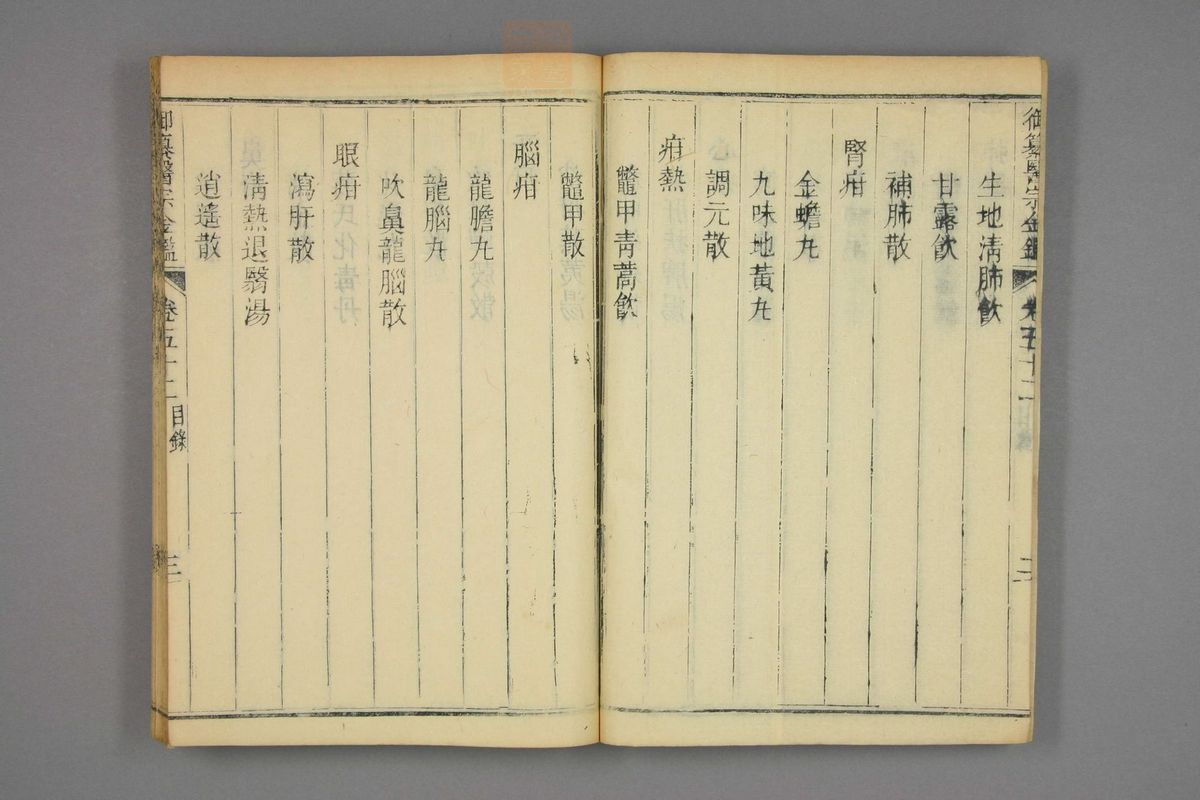 御纂醫宗金鑑 卷五十二 目錄 二
生地淸肺飮
甘露飮
補肺散
腎疳
金蟾丸
九味地黃丸
調元散
疳熱
鼈甲靑蒿飮
鼈甲散
腦疳
龍膽丸
龍腦丸
吹鼻龍腦散
眼疳
瀉肝散
淸熱退翳湯
逍遙散
御纂醫宗金鑑 卷五十二 目錄 三